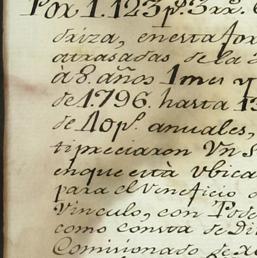 Por 1.123 p.s 3 rr.
driza, en esta for
atrasadas de la
a 8. años 1 mes y
de 1.796. hasta 13
de 40 p.s anuales,
tipreciaron Vn S
en que està vbica
para el veneficio
Vinculo, con Pode
como consta de di
Comisionado de